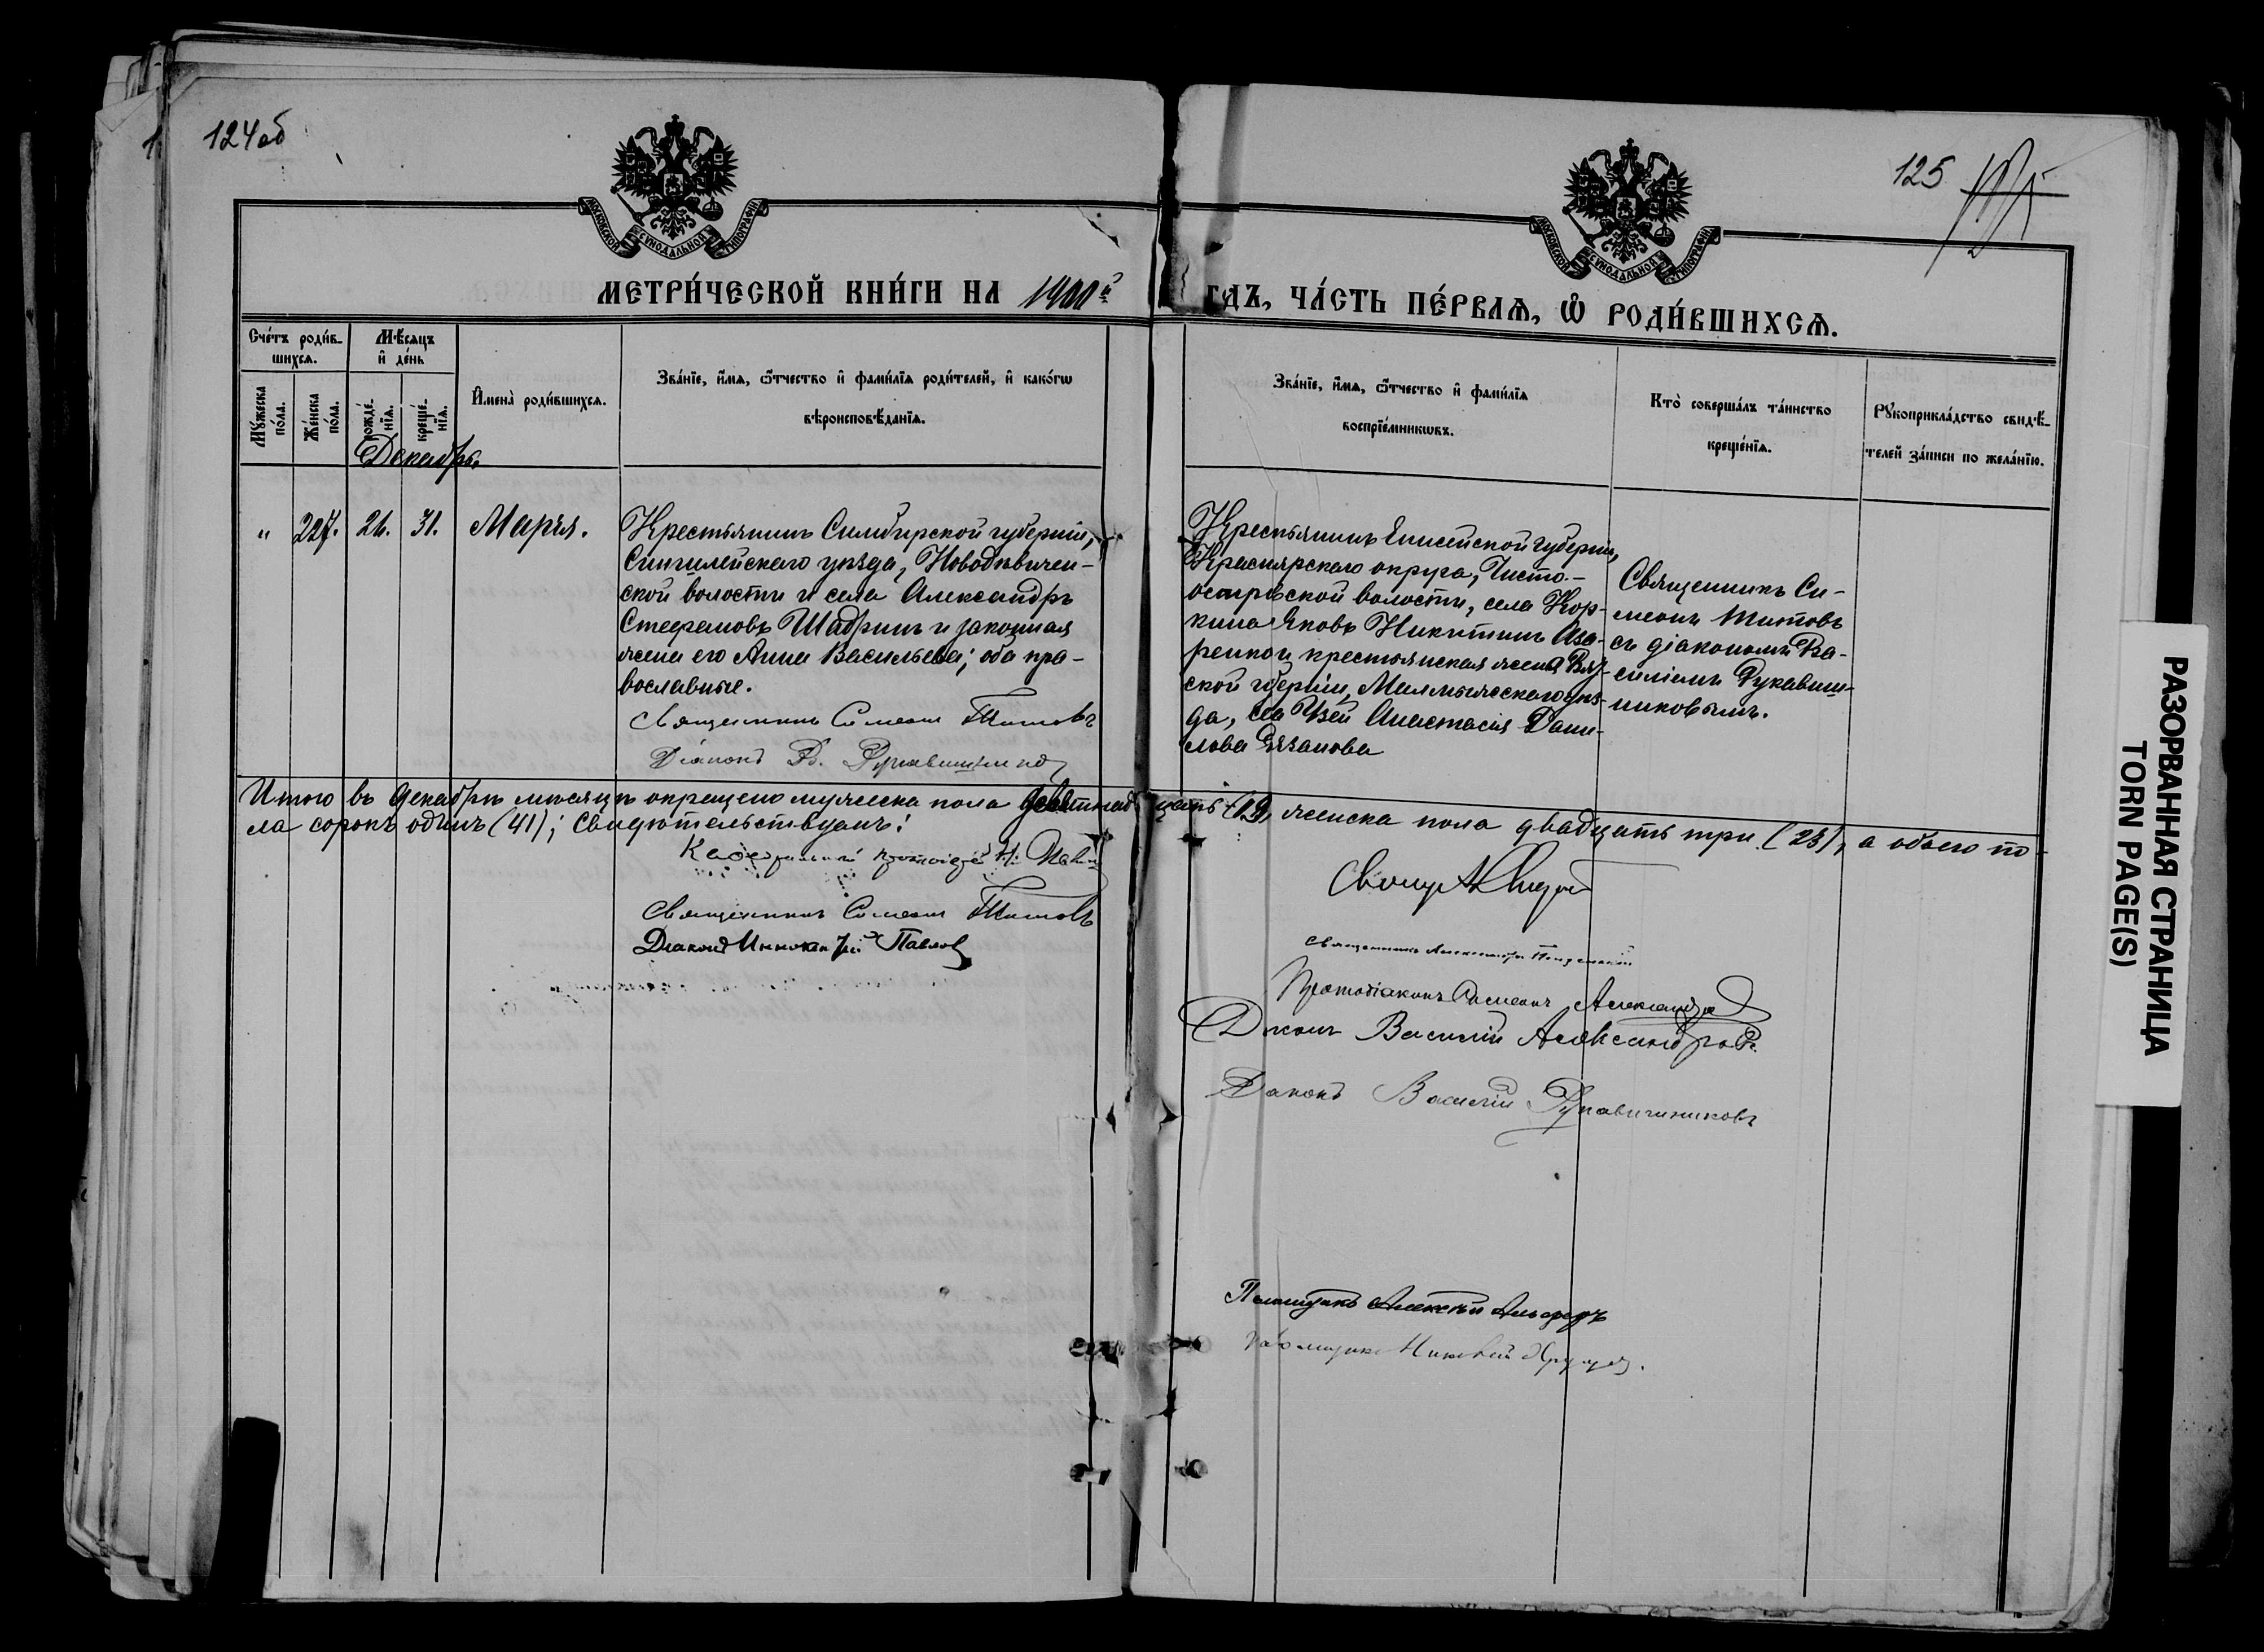 124об
125
МОСКОВСКОЙ СѴНОДАЛЬНОЙ ТИПОГРАФІИ
МОСКОВСКОЙ СѴНОДАЛЬНОЙ ТИПОГРАФІИ
МЕТРИ́ЧЕСКОЙ КНИ́ГИ НА 1900й
ГДЪ, ЧА́СТЬ ПЕ́РВАѦ, Ѽ РОДИ́ВШИХСѦ.
Сче́тъ роди́в-
шихся.
Мѣ́сяцъ
и҆ де́нь
Мꙋ́жеска
по́ла.
Же́нска
по́ла.
рожде́-
нїя.
креще́-
нїя.
И҆мена̀ роди́вшихся.
Зва́нїе, и҆́мя, ѻ҆́тчество и҆ фами́лїя роди́телей, и҆ како́гѡ
вѣроисповѣ́данїя.
Зва́нїе, и҆́мя, ѻ҆́тчество и҆ фами́лїя
воспрїе́мникѡвъ.
Кто̀ соверша́лъ та́инство
креще́нїя.
Рꙋкоприкла́дство свидѣ́-
телей за́писи по жела́нїю.
Декабрь
" 227. 26. 31. Марія.
Крестьянинъ Симбирской губерніи,
Сингилейскаго уѣзда, Новодѣвичен-
ской волости и села Александръ
Стефановъ Шадринъ и законная
жена его Анна Васильева; оба пра-
вославные.
Священникъ Симеонъ Титовъ
Діаконъ В. Рукавишниковъ
Крестьянинъ Енисейской губерніи,
Красноярскаго округа, Чисто-
островской волости, села Кор-
кина Яковъ Никитинъ
и крестьянская жена Вят-
ской губерніи, Малмыжскаго уѣз-
да, Анастасія Дани-
лова Рязанова
Священникъ Си-
меонъ Титовъ
съ діакономъ Ва-
силіемъ Рукавиш-
никовымъ.
Итого въ декабрѣ мѣсяцѣ окрещено мужеска пола девятнадцать (19), женска пола двадцать три (23), а обоего по-
ла сорокъ одинъ (41); свидѣтельствуемъ:
Каѳедральный протоіерей
Священникъ Симеонъ Титовъ
Діаконъ Иннокентій Павлов
Священникъ Александръ
Протодіаконъ Симеонъ Александров
Діаконъ Василій Александровъ.
Діаконъ Василій Рукавишниковъ
Псаломщикъ Алексѣй
Псаломщикъ Николай
РАЗОРВАННАЯ СТРАНИЦА
TORN PAGE(S)